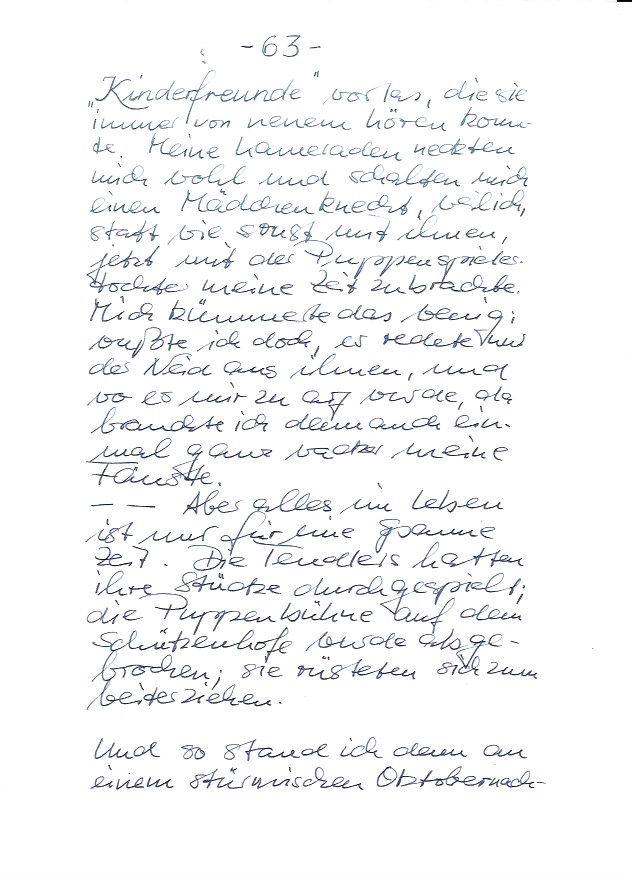 - 63 -
„Kinderfreunde" vorlas, die sie
immer von neuem hören konn-
te. Meine Kameraden neckten
mich wohl und schalten mich
einen Mädchenknecht, weil ich,
statt wie sonst mit ihnen,
jetzt mit der Puppenspieler-
tochter meine Zeit zubrachte.
Mich kümmerte das wenig;
wußte ich doch, es redete nur
der Neid aus ihnen, und
wo es mir zu arg wurde, da
brauchte ich denn auch ein-
mal ganz wacker meine
Fäuste.
— — Aber alles im Leben
ist nur für eine Spanne
Zeit. Die Tendlers hatten
ihre Stücke durchgespielt;
die Puppenbühne auf dem
Schützenhofe wurde abge-
brochen; sie rüsteten sich zum
Weiterziehen.
Und so stand ich denn an
einem stürmischen Oktobernach-